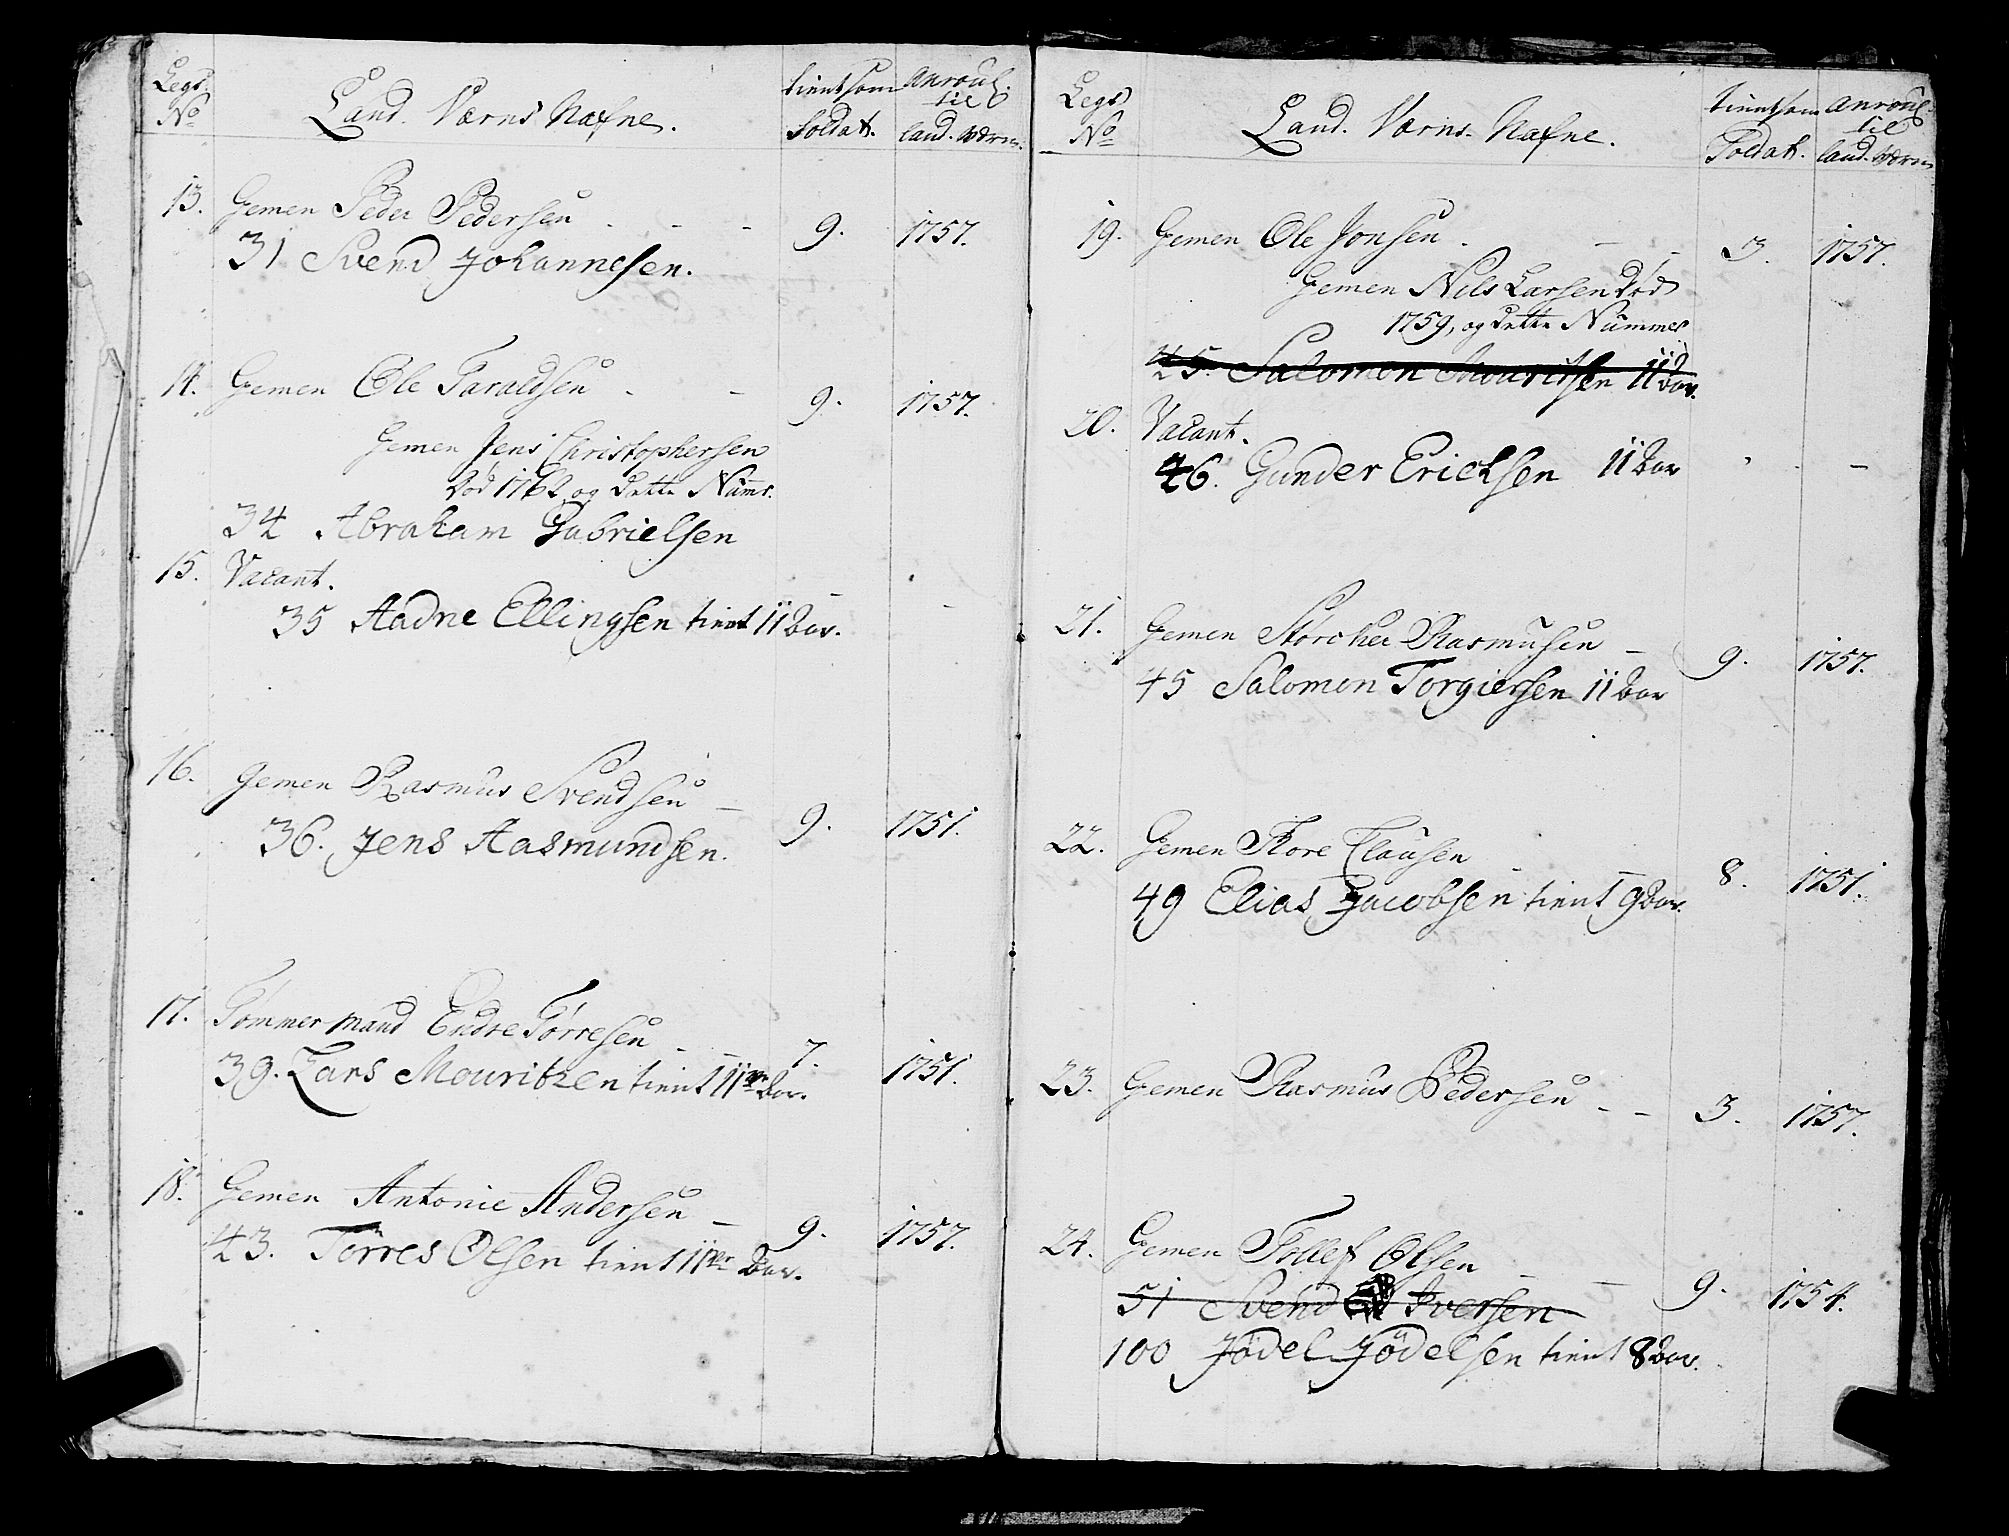 Legs No Land. Værns Nafne. tient som Soldat. anroul. til land. værn.
13. Gemen Peder Pedersen - - - 9. 1757.
31 Svend Johannesen.
14. Gemen Ole Taraldsen - - 9. 1757.
Gemen Jens Christophersen
død 1762 og dette Numr.
34 Abraham Gabrielsen
15. Vacant. - -
35 Aadne Ellingsen tient 11 aar.
16. Gemen Rasmus Svendsen - 9. 1751.
36. Jens Aasmundsen.
17. Tømmermand Endre Tørresen - - 7. 1751.
39. Lars Mouritzen tient 11 aar.
18. Gemen Antonie Andersen - 9. 1757.
43. Törres Olsen tient 11 aar.
Legs No Land. Værns. Nafne. tient som Soldat. anroul. til land. værn
19. Gemen Ole Jonsen. - - 3. 1757.
Gemen Nils Larsen død
1759, og dette Nummer
45. Salomon Mouritsen 11 aar.
20. Vacant. - - -
46. Gunder Ericksen 11 aar
21. Gemen Storcher Rasmusen - 9. 1757.
45 Salomon Torgiersen 11 aar
22. Gemen Tore Clausen - - 8. 1751.
49 Elias Jacobsen tient 9 aar.
23. Gemen Rasmus Pedersen - - 3. 1757.
24. Gemen Tollef Olsen - - 9. 1754.
51 Svend Iversen
100 Jödel Jödelsen tient 8 aar.